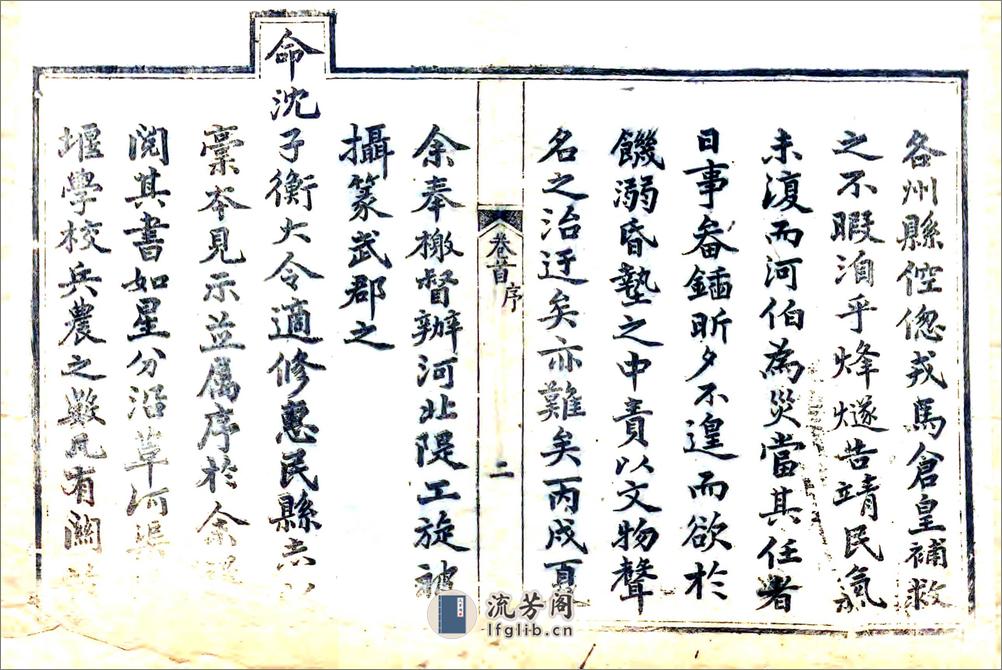 各州縣倥傯戎馬倉皇補救
之不暇洎乎烽燧告靖民氣
未復而河伯為災當其任者
日事畚鍤昕夕不遑而欲於
饑溺昏墊之中責以文物聲
名之治迂矣亦難矣丙戌夏
卷首 序
二
余奉檄督辦河北隄工旋被
攝篆武郡之
命沈子衡大令適修惠民縣志
稾本見示並屬序於余
閱其書如星分沿革河渠
堰學校兵農之數凡有關
流芳阁
lfglib.cn